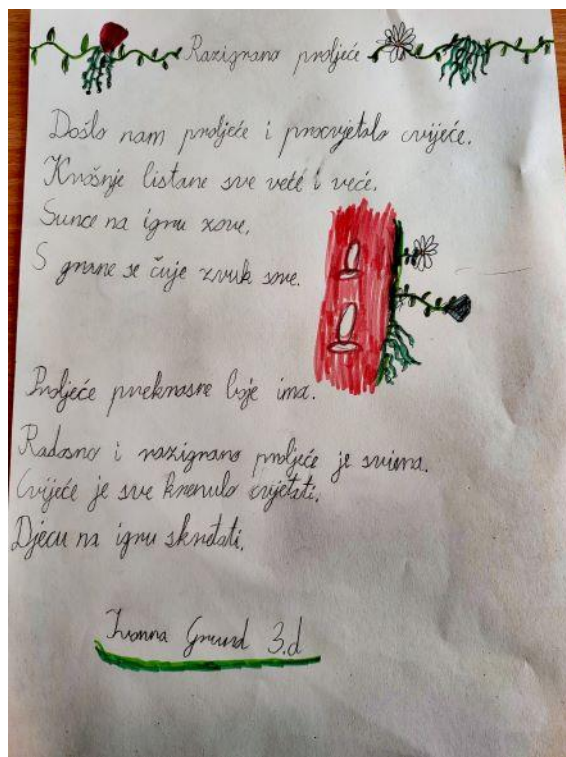 Razigrano proljeće
Došlo nam proljeće i procvjetalo cvijeće.
Krošnje listane sve veće i veće.
Sunce na igru zove,
S grane se čuje zvuk sove.
Proljeće prekrasne boje ima.
Radosno i razigrano proljeće je svima.
Cvijeće je sve krenulo cvjetati,
Djecu na igru skretati.
Ivanna Grund 3.d